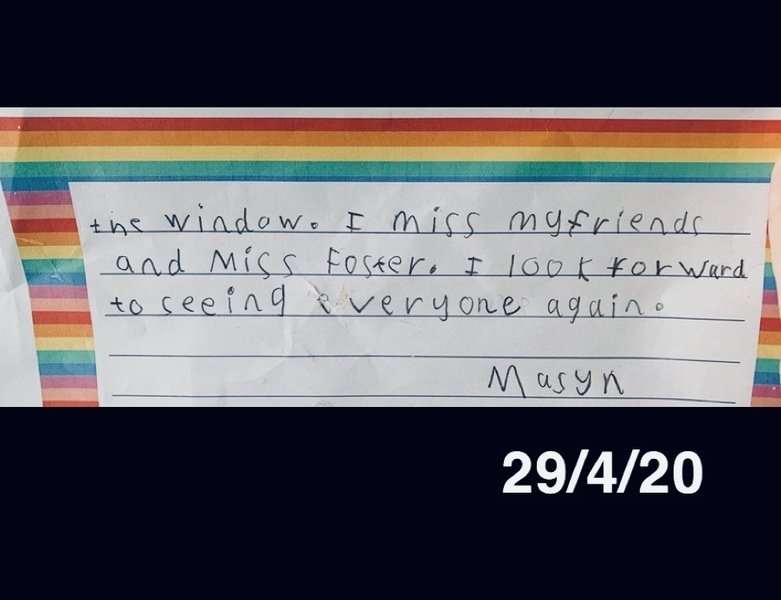 the window. I miss my friends
and Miss Foster. I look forward
to seeing everyone again.
Masyn
29/4/20